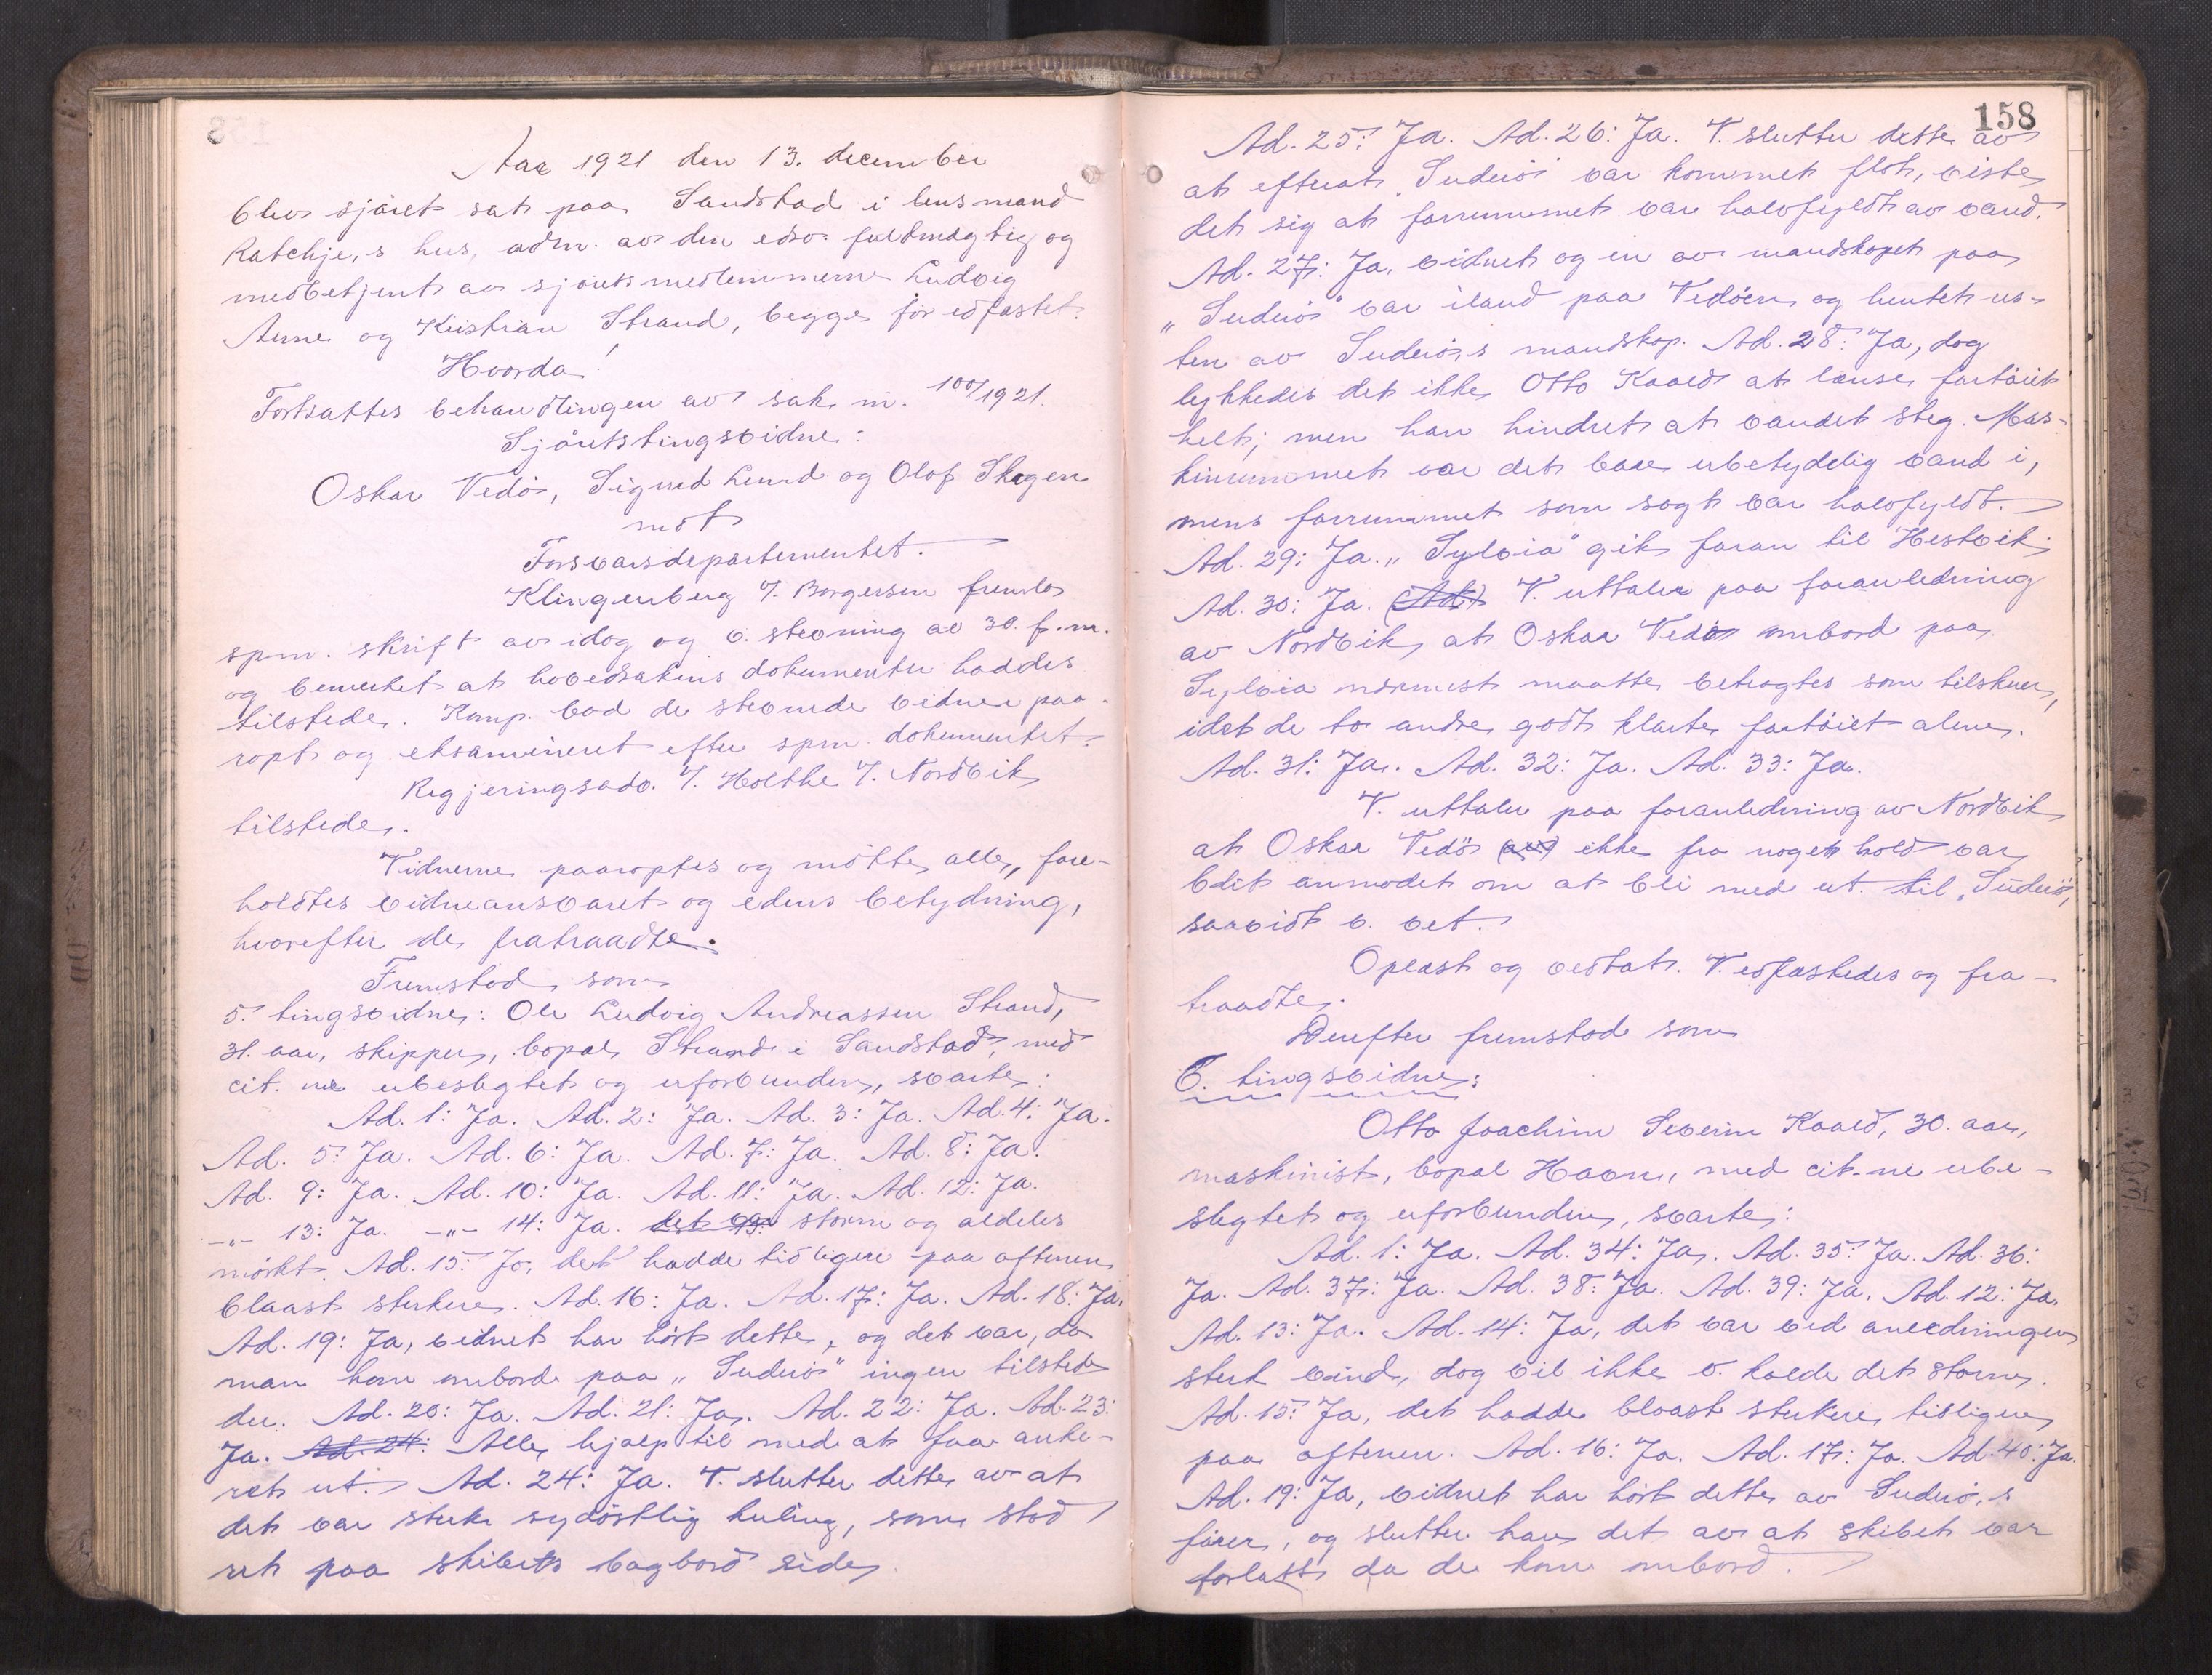 Aar 1921 den 13. december
blev sjöret sat paa Sandstad i lensmand
Ratchje,s hus, adm. av den edsv. fuldmægtig og
medbetjent av sjöretsmedlemmerne Ludvig
Aune og Kristian Strand, begge för edfæstet.
Hvorda!
Fortsattes behandlingen av sak nr. 100/1921.
Sjöretstingsvidne:
Oskar Vedö, Sigurd Lund og Olaf Skagen
mot
Forsvarsdepartementet.
Klingenberg v. Borgersen fremla
spm. skrift av idag og v. stevning av 30. f.m.
og bemerket at hovedsakens dokumenter haddes
tilstede. Komp. bad de stevnede vidner paa-
ropt og eksamineret efter spm. dokumentet.
Regjeringsadv. v. Holthe v. Nordvik
tilstede.
Vidnerne paaroptes og mötte alle, fore-
holdtes vidneansvaret og edens betydning,
hvorefter de fratraadte.
Fremstod som
5. tingsvidne: Ole Ludvig Andreassen Strand,
31. aar, skipper, bopæl Strand i Sandstad, med
cit. ne ubeslegtet og uforbunden, svarte:
Ad. 1: Ja. Ad. 2: Ja. Ad. 3: Ja. Ad. 4: Ja.
Ad. 5: Ja. Ad. 6: Ja. Ad. 7: Ja. Ad. 8: Ja.
Ad. 9: Ja. Ad. 10: Ja. Ad. 11: Ja. Ad. 12: Ja.
-"- 13: Ja. -"- 14: Ja. det var storm og aldeles
mörkt. Ad. 15: Jo, det hadde tidligere paa aftenen
blaast sterkere. Ad. 16: Ja. Ad. 17: Ja. Ad. 18: Ja.
Ad. 19: Ja, vidnet har hört dette, og det var, da
man kom ombord paa „Suderö" ingen tilstede
der. Ad. 20: Ja. Ad. 21: Ja. Ad. 22: Ja. Ad. 23:
Ja. Ad. 24: Alle hjalp til med at faa anke-
ret ut. Ad. 24: Ja. V. slutter dette av at
det var sterk sydöstlig kuling, som stod
ret paa skibets bagbord side.
158
Ad. 25: Ja. Ad. 26: Ja. V. slutter dette av
at efterat „Suderö" var kommet flot, viste
det sig at forrummet var halvfyldt av vand.
Ad. 27: Ja, vidnet og en av mandskapet paa
„Suderö" var iland paa Vedöen og hentet res-
ten av Suderö,s mandskap. Ad. 28: Ja, dog
lykkedes det ikke Otto Kaald at lænse fartöiet
helt; men han hindret at vandet steg. Mas-
kinrummet var det bare ubetydelig vand i,
mens forrummet som sagt var halvfyldt.
Ad. 29: Ja. „Sylvia" gik foran til Hestvik.
Ad. 30: Ja. (Ad.) V. uttaler paa foranledning
av Nordvik, at Oskar Vedö ombord paa
Sylvia nærmest maatte betragtes som tilskuer,
idet de to andre godt klarte fartöiet alene.
Ad. 31: Ja. Ad. 32: Ja. Ad. 33: Ja.
V. uttaler paa foranledning av Nordvik
at Oskar Vedö ikke fra noget hold var
blit anmodet om at bli med ut til „Suderö",
saavidt v. vet.
Oplæst og vedtat. V. edfæstedes og fra-
traadte.
Derefter fremstod som
6. tingsvidne:
Otto Joachim Severin Kaald, 30. aar,
maskinist, bopæl Havn, med cit-ne ube-
slegtet og uforbunden, svarte:
Ad. 1: Ja. Ad. 34: Ja. Ad. 35: Ja. Ad. 36:
Ja. Ad. 37: Ja. Ad. 38: Ja. Ad. 39: Ja. Ad. 12: Ja.
Ad. 13: Ja. Ad. 14: Ja, det var ved anledningen
sterk vind, dog vil ikke v. kalde det storm.
Ad. 15: Ja, det hadde blaast sterkere tidligere
paa aftenen. Ad. 16: Ja. Ad. 17: Ja. Ad. 40: Ja.
Ad. 19: Ja, vidnet har hört dette av Suderö,s
förer, og slutter han det av at skibet var
forlatt da de kom ombord.